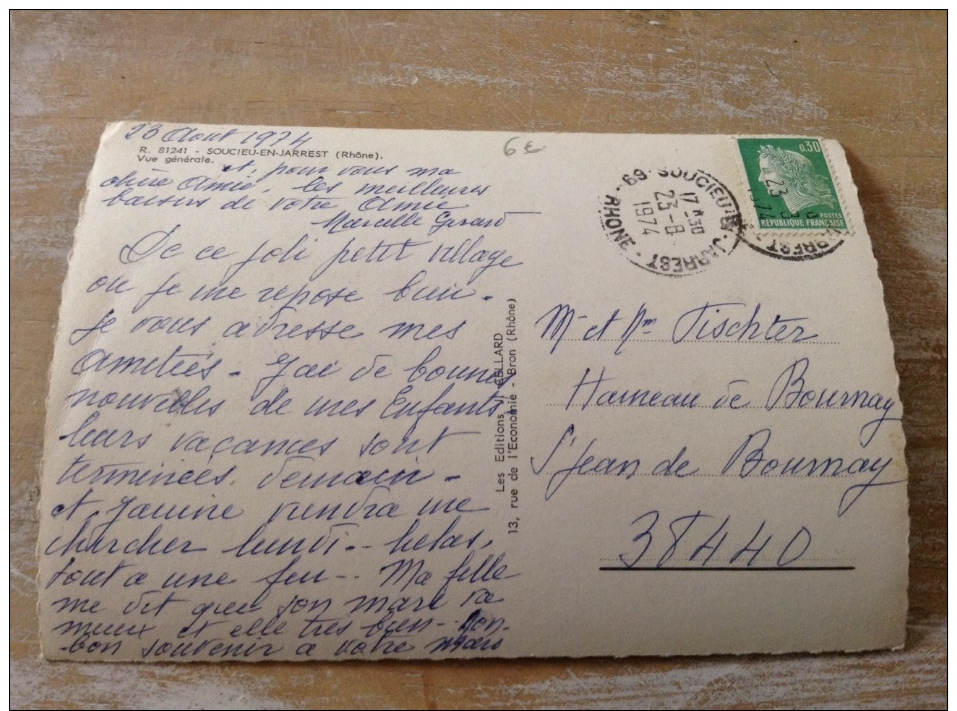 23 Aout 1974
R. 81241 - SOUCIEU-EN-JARREST (Rhône).
Vue générale.
et, pour vous ma
chère Amie. les meilleurs
baisers de votre Amie
Marcelle Girard
De ce joli petit village
ou je me repose bien.
je vous adresse mes
Amitiés - J'ai de bonnes
nouvelles de mes Enfants,
leurs vacances sont
terminées. demain -
et Janine viendra me
chercher lundi.. helas,
tout a une fin.. Ma fille
me dit que son mari va
mieux et elle très bien.. Mon
bon souvenir à votre mari
6€
Les Editions J.
13, rue de l'Economie - Bron (Rhône)
69 - SOUCIEU-EN-JARREST - RHONE
17H30
23-8
1974
0,30
POSTES
REPUBLIQUE FRANÇAISE
Mr et Mme Fischter
Hameau de Bournay
St Jean de Bournay
38440